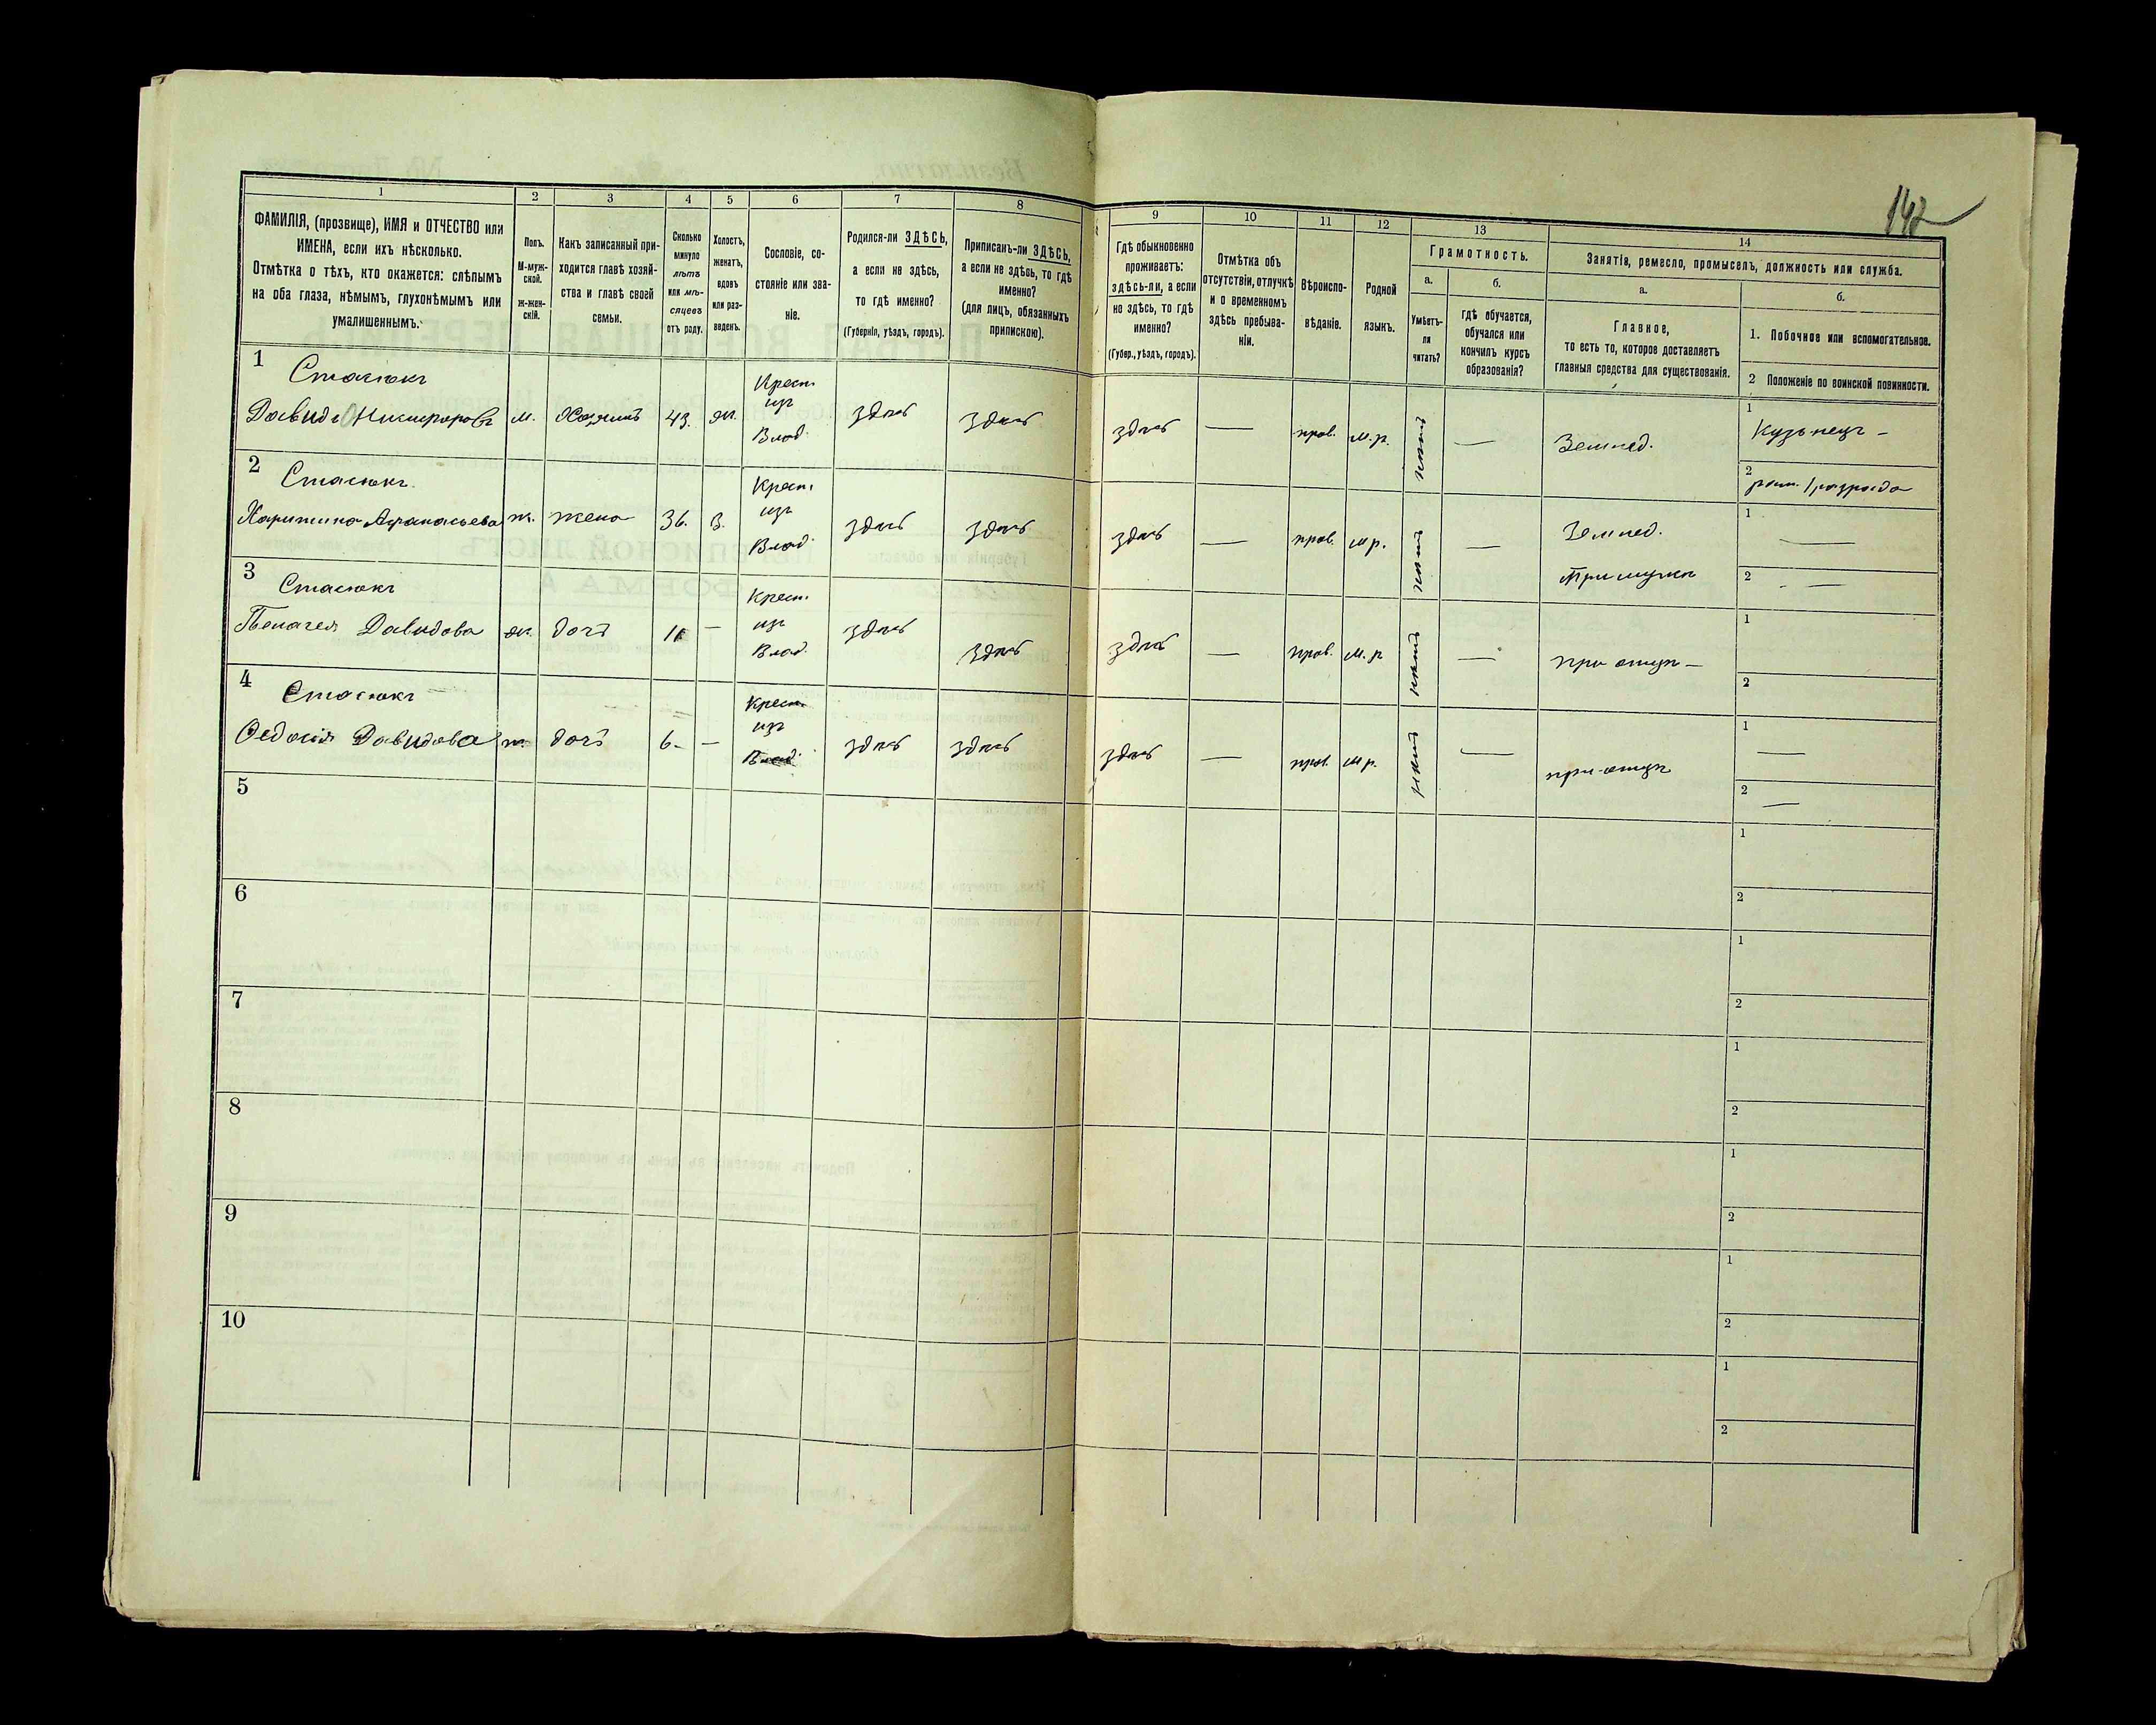 142
1 2 3 4 5 6 7 8 9 10 11 12 13 14
ФАМИЛІЯ, (прозвище), ИМЯ и ОТЧЕСТВО или
ИМЕНА, если ихъ нѣсколько.
Отмѣтка о тѣхъ, кто окажется: слѣпымъ
на оба глаза, нѣмымъ, глухонѣмымъ или
умалишеннымъ.
Полъ.
М-муж-
ской.
ж-жен-
скій.
Какъ записанный при-
ходится главѣ хозяй-
ства и главѣ своей
семьи.
Сколько
минуло
лѣтъ
или мѣ-
сяцевъ
отъ роду.
Холостъ,
женатъ,
вдовъ
или раз-
веденъ.
Сословіе, со-
стояніе или зва-
ніе.
Родился-ли ЗДѢСЬ,
а если не здѣсь,
то гдѣ именно?
(Губернія, уѣздъ, городъ).
Приписанъ-ли ЗДѢСЬ,
а если не здѣсь, то гдѣ
именно?
(для лицъ, обязанныхъ
припискою).
Гдѣ обыкновенно
проживаетъ:
здѣсь-ли, а если
не здѣсь, то гдѣ
именно?
(Губер., уѣздъ, городъ).
Отмѣтка объ
отсутствіи, отлучкѣ
и о временномъ
здѣсь пребыва-
ніи.
Вѣроиспо-
вѣданіе.
Родной
языкъ.
Грамотность.
а.
Умѣетъ-
ли
читать?
б.
гдѣ обучается,
обучался или
кончилъ курсъ
образованія?
Занятіе, ремесло, промыселъ, должность или служба.
а.
Главное,
то есть то, которое доставляетъ
главныя средства для существованія.
б.
1. Побочное или вспомогательное.
2 Положеніе по воинской повинности.
1 Стасюкъ
Давидъ Никифоровъ м. Хозяинъ 43. ж. Крест. изъ Влад. здѣсь здѣсь здѣсь — прав. м.р. нѣтъ — Земпед.
1 Кузьнецъ —
2 рат. 1 разряда
2 Стасюкъ
Харитина Афанасьева ж. жена 36. З. Крест. изъ Влад. здѣсь здѣсь здѣсь — прав. м р. нѣтъ — Земпед.
при мужѣ
1 —
2 —
3 Стасюкъ
Пелагея Давидова ж. дочь 11 — Крест. изъ Влад. здѣсь здѣсь здѣсь — прав. м.р. нѣтъ — при отцѣ —
1
2
4 Стасюкъ
Ѳедосія Давидова ж. дочь 6 — — Крест. изъ Влад. здѣсь здѣсь здѣсь — прав. м р. нѣтъ — при отцѣ
1 —
2 —
5
1
2
6
1
2
7
1
2
8
1
2
9
1
2
10
1
2